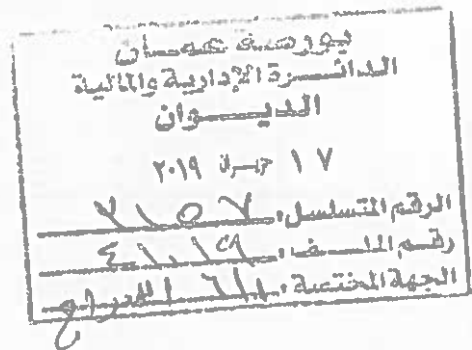 بورصة عمان
الدائرة الإدارية والمالية
الديوان
١٧ حزيران ٢٠١٩
الرقم المتسلسل: ٢١٥٧
رقم الملف:
الجهة المختصة: